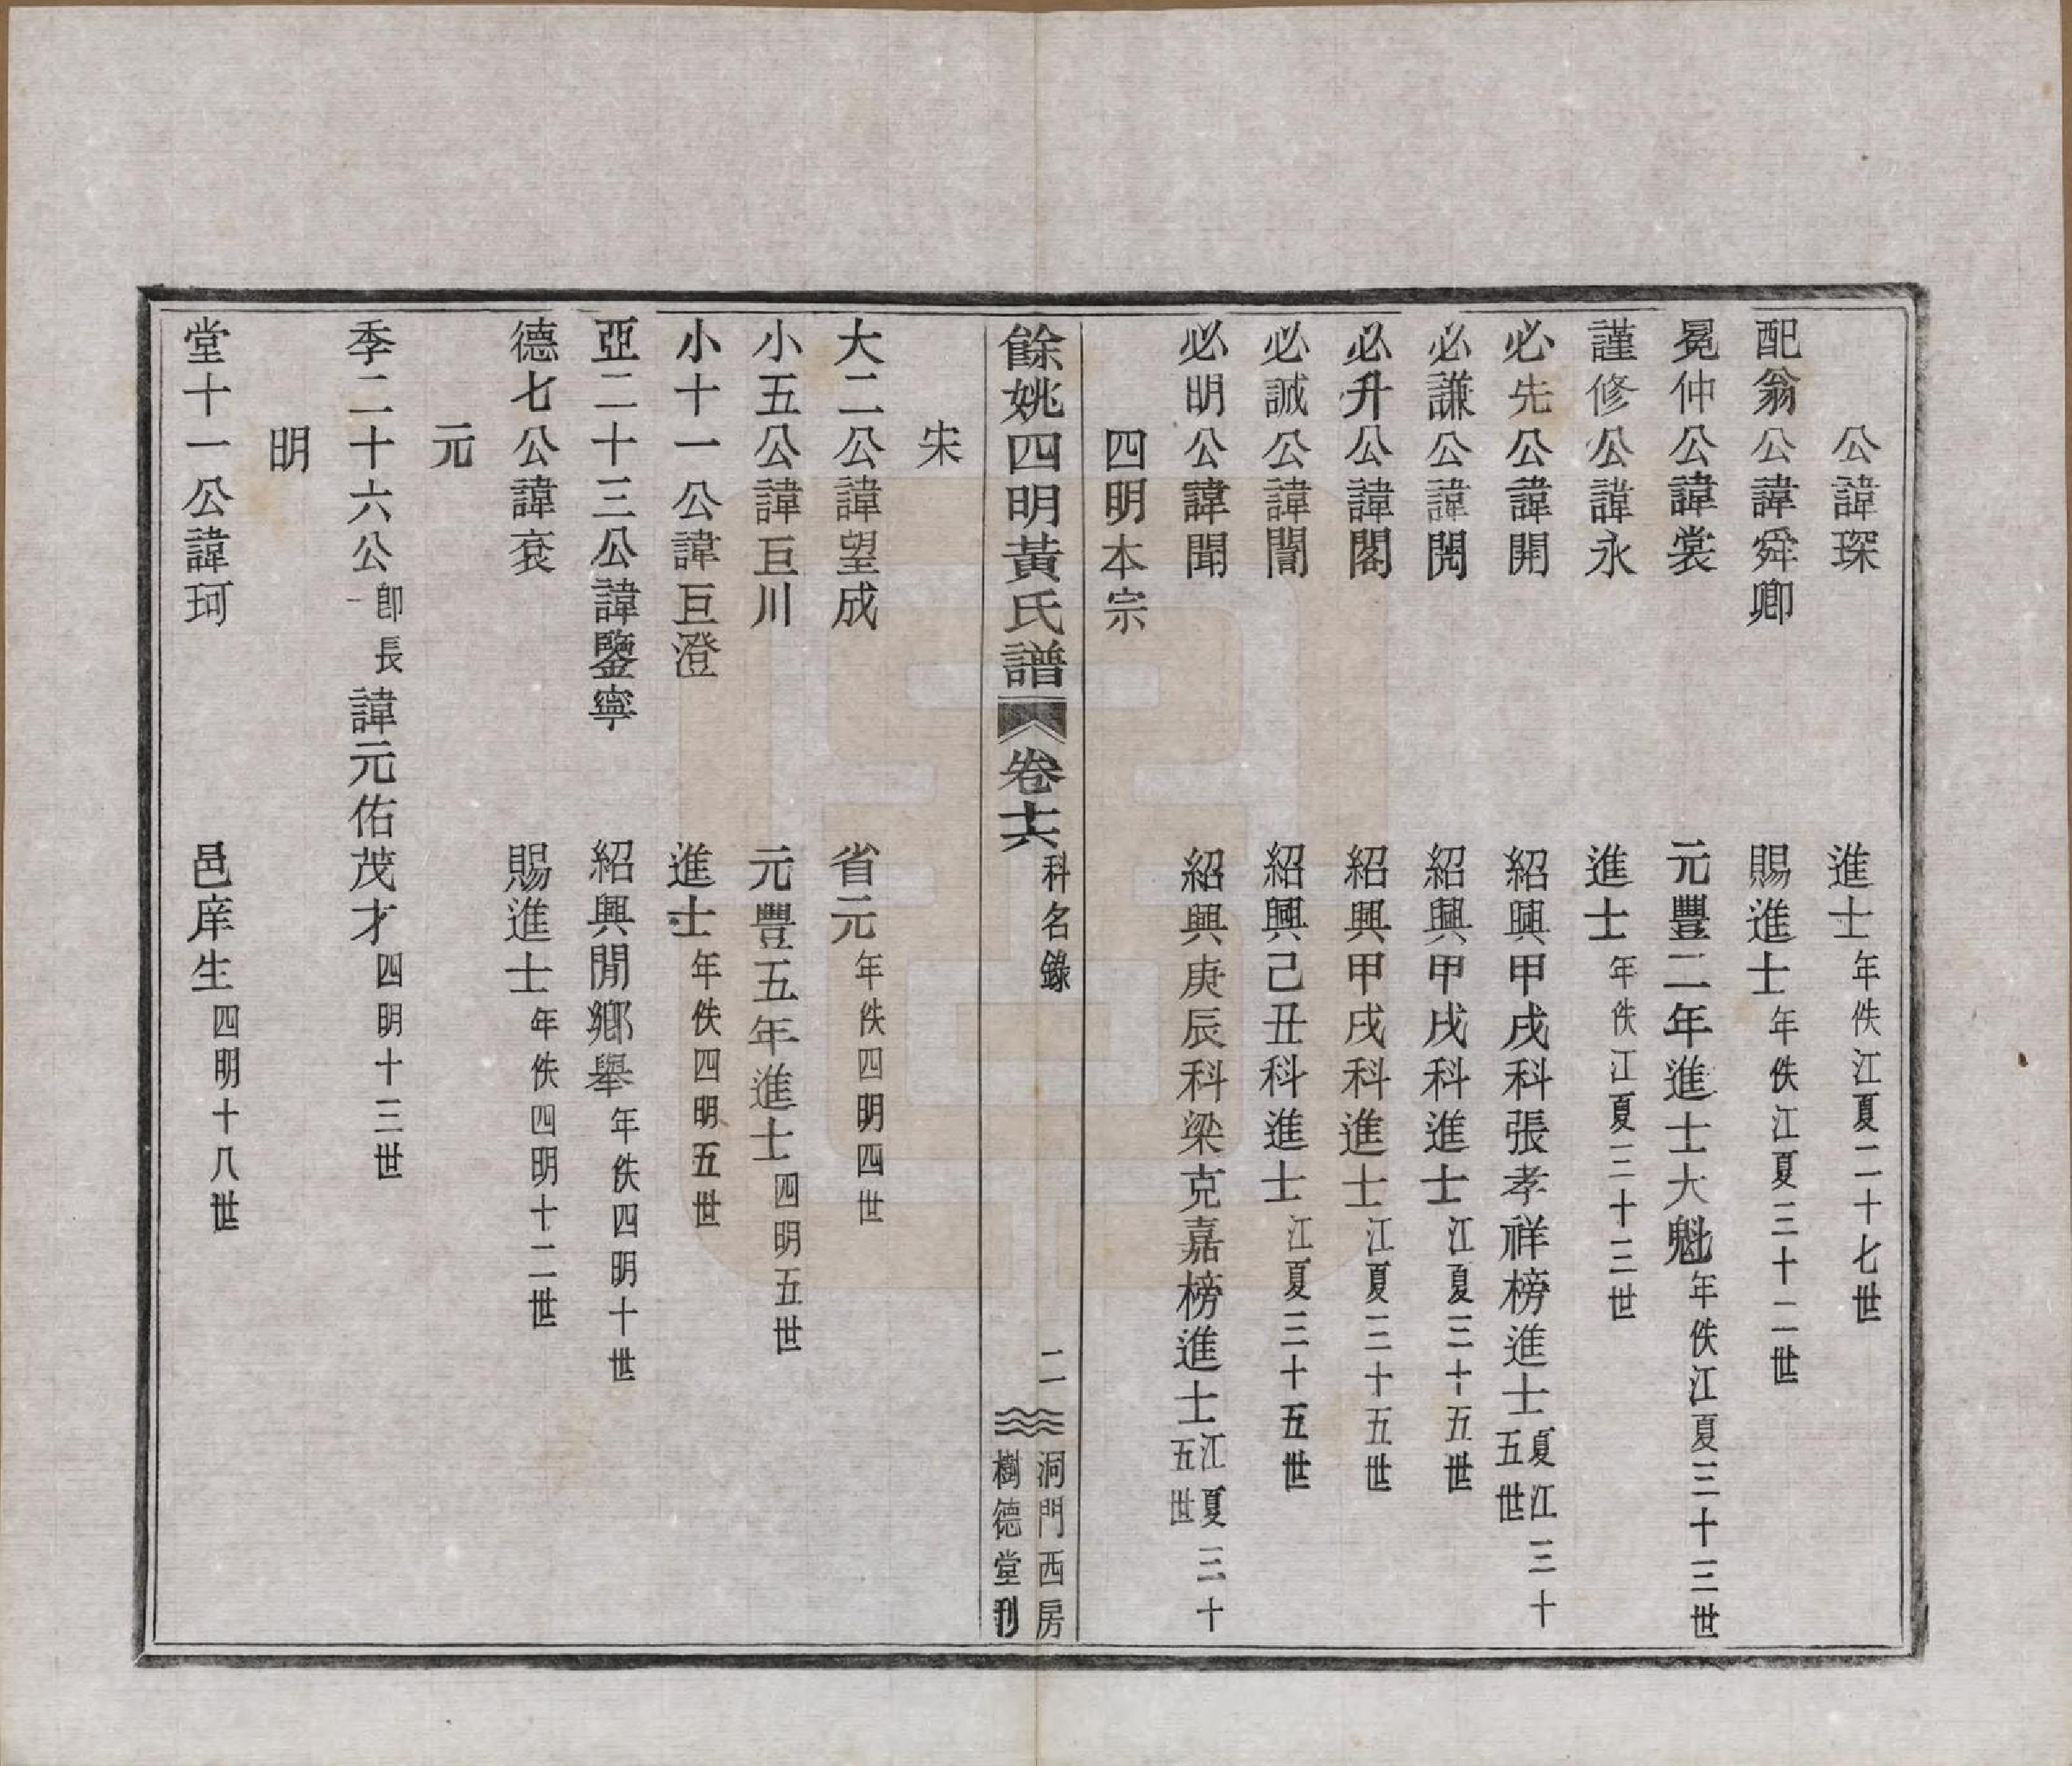 公諱琛 進士年佚江夏二十七世
配翁公諱舜卿 賜進士年佚江夏三十二世
冕仲公諱裳 元豐二年進士大魁年佚江夏三十三世
謹修公諱永 進士年佚江夏三十三世
必先公諱開 紹興甲戌科張孝祥榜進士夏江三十五世
必謙公諱閱 紹興甲戌科進士江夏三十五世
必升公諱閣 紹興甲戌科進士江夏三十五世
必誠公諱誾 紹興己丑科進士江夏三十五世
必明公諱聞 紹興庚辰科梁克嘉榜進士江夏三十五世
四明本宗
餘姚四明黃氏譜 卷十六 科名錄 二 洞門西房 樹德堂刊
宋
大二公諱望成 省元年佚四明四世
小五公諱巨川 元豐五年進士四明五世
小十一公諱巨澄 進士年佚四明五世
亞二十三公諱鑒寧 紹興開鄉舉年佚四明十世
德七公諱袞 賜進士年佚四明十二世
元
季二十六公即長一諱元佑茂才四明十三世
明
堂十一公諱珂 邑庠生四明十八世